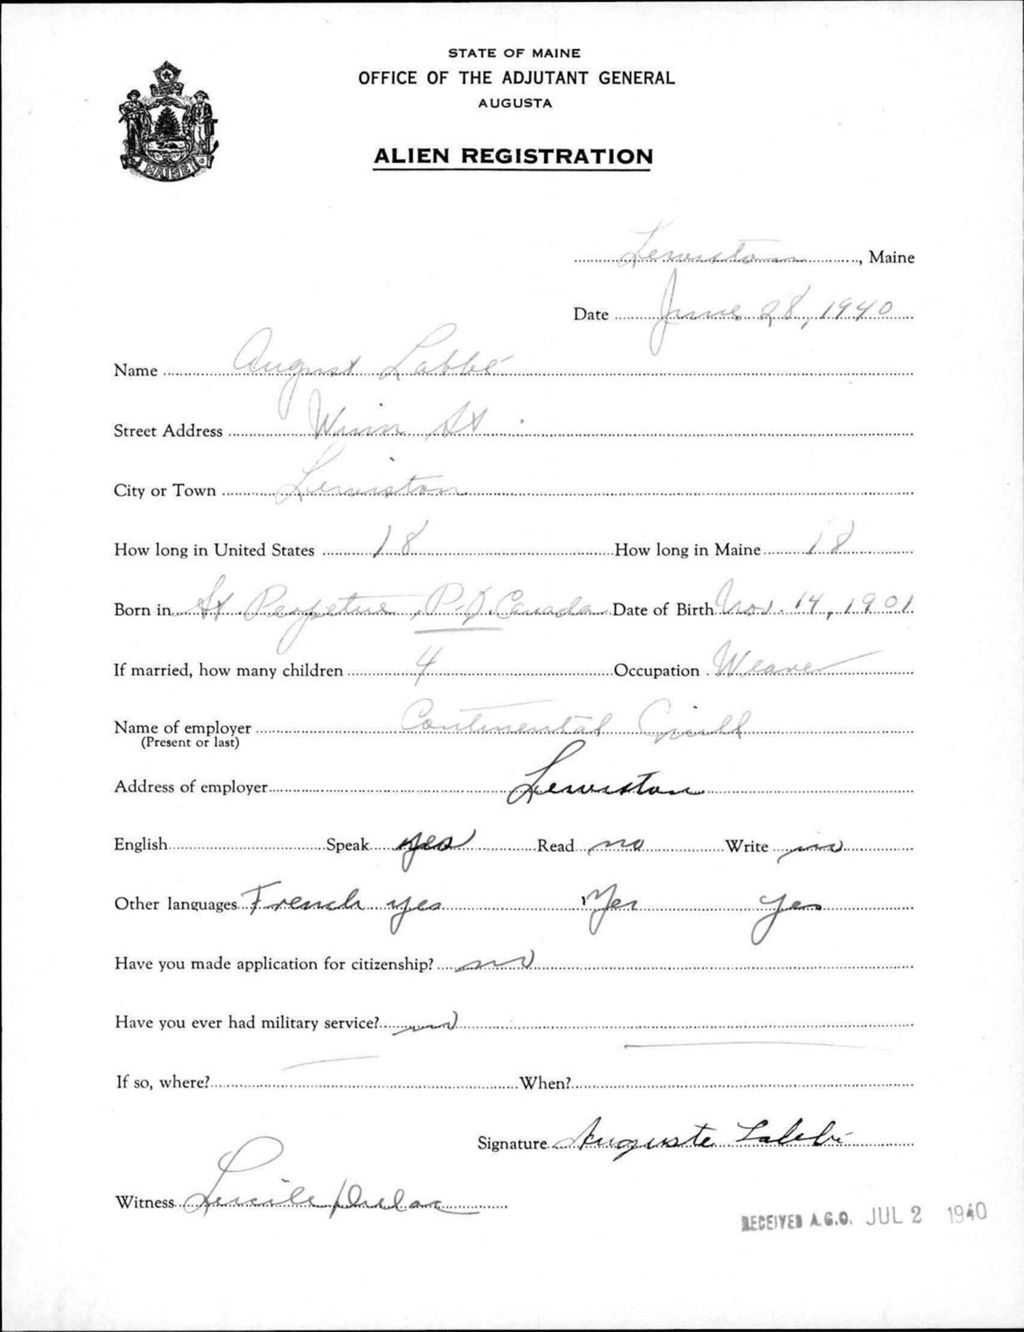 STATE OF MAINE
OFFICE OF THE ADJUTANT GENERAL
AUGUSTA
ALIEN REGISTRATION
MAINE
Lewiston, Maine
Date June 28, 1940
Name August Labbé
Street Address Winn St.
City or Town Lewiston
How long in United States 18 How long in Maine 18
Born in St Perpetue, P.Q. Canada Date of Birth Nov. 14, 1901
If married, how many children 4 Occupation Weaver
Name of employer Continental Mill
(Present or last)
Address of employer Lewiston
English Speak yes Read no Write no
Other languages French yes Yes Yes
Have you made application for citizenship? no
Have you ever had military service? no
If so, where? — When? —
Signature Auguste Labbé
Witness Lucile Dulac
RECEIVED A.G.O. JUL 2 1940